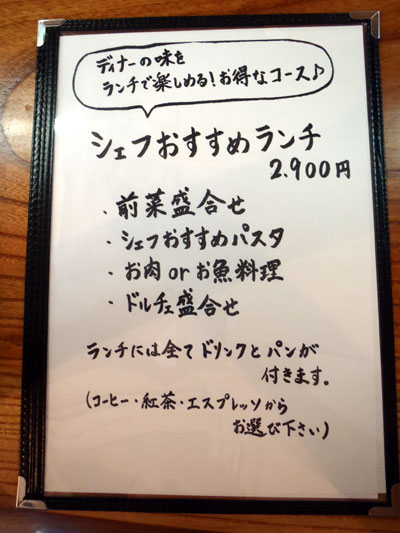 ディナーの味を
ランチで楽しめる!お得なコース♪
シェフおすすめランチ
2.900円
・前菜盛合せ
・シェフおすすめパスタ
・お肉orお魚料理
・ドルチェ盛合せ
ランチには全てドリンクとパンが
付きます。
(コーヒー・紅茶・エスプレッソから
お選び下さい)